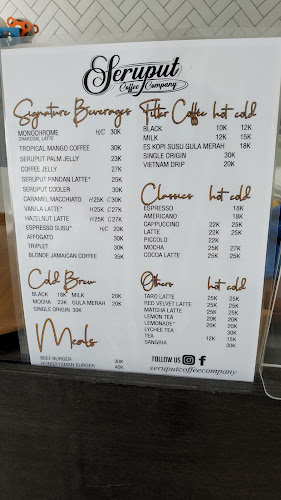 Seruput
Coffee Company
Signature Beverages
MONOCHROME H/C 30K
CHARCOAL LATTE
TROPICAL MANGO COFFEE 30K
SERUPUT PALM JELLY 23K
COFFEE JELLY 27K
SERUPUT PANDAN LATTE* 25K
SERUPUT COOLER 30K
CARAMEL MACCHIATO H25K C30K
VANILA LATTE* H25K C27K
HAZELNUT LATTE H25K C27K
ESPRESSO SUSU* H/C 20K
AFFOGATO 30K
TRIPLET 30K
BLONDE JAMAICAN COFFEE 35K
Cold Brew
BLACK 18K MILK 20K
MOCHA 23K GULA MERAH 20K
SINGLE ORIGIN 30K
Meals
BEEF BURGER 30K
HUNGRYSMAN BURGER 40K
Filter Coffee hot cold
BLACK 10K 12K
MILK 12K 15K
ES KOPI SUSU GULA MERAH 18K
SINGLE ORIGIN 30K
VIETNAM DRIP 20K
Classics hot cold
ESPRESSO 18K
AMERICANO 18K
CAPPUCCINO 22K 25K
LATTE 22K 25K
PICCOLO 22K
MOCHA 25K 27K
COCOA LATTE 25K 25K
Others hot cold
TARO LATTE 25K 25K
RED VELVET LATTE 25K 25K
MATCHA LATTE 25K 25K
LEMON TEA 20K 20K
LEMONADE* 20K 20K
LYCHEE TEA 30K
TEA 12K 15K
SANGRIA 30K
FOLLOW US
seruputcoffeecompany